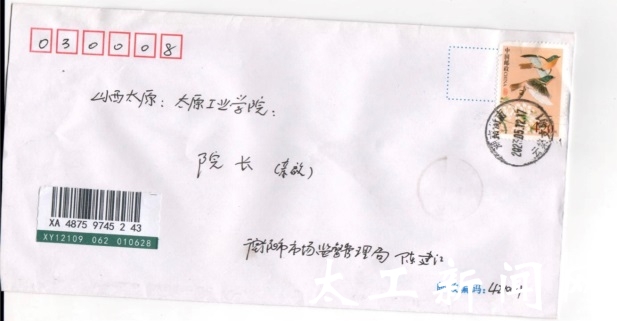 030008
中国邮政
山西太原：太原工业学院：
院 长 (亲启)
XA 4875 9745 2 43
XY12109 062 010628
衡阳市市场监督管理局 陈建江
太工新闻